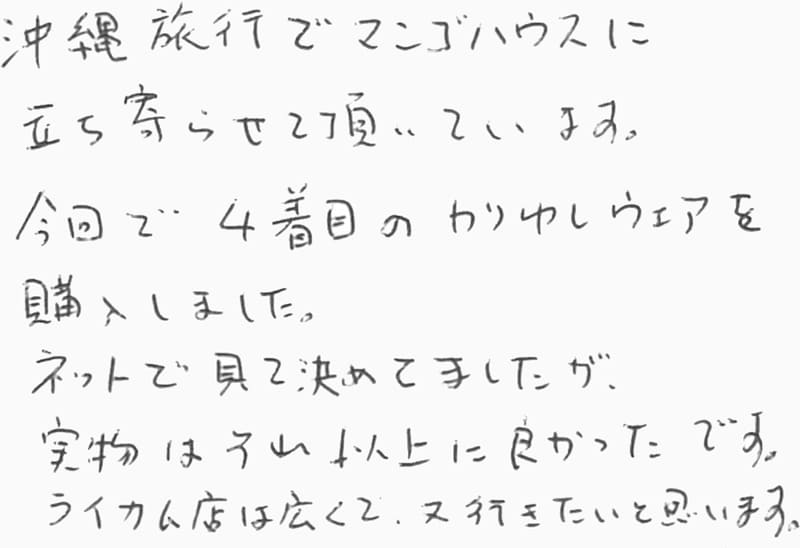 沖縄旅行でマンゴハウスに
立ち寄らせて頂いています。
今回で4着目のかりゆしウェアを
購入しました。
ネットで見て決めてましたが、
実物はそれ以上に良かったです。
ライカム店は広くて、又行きたいと思います。